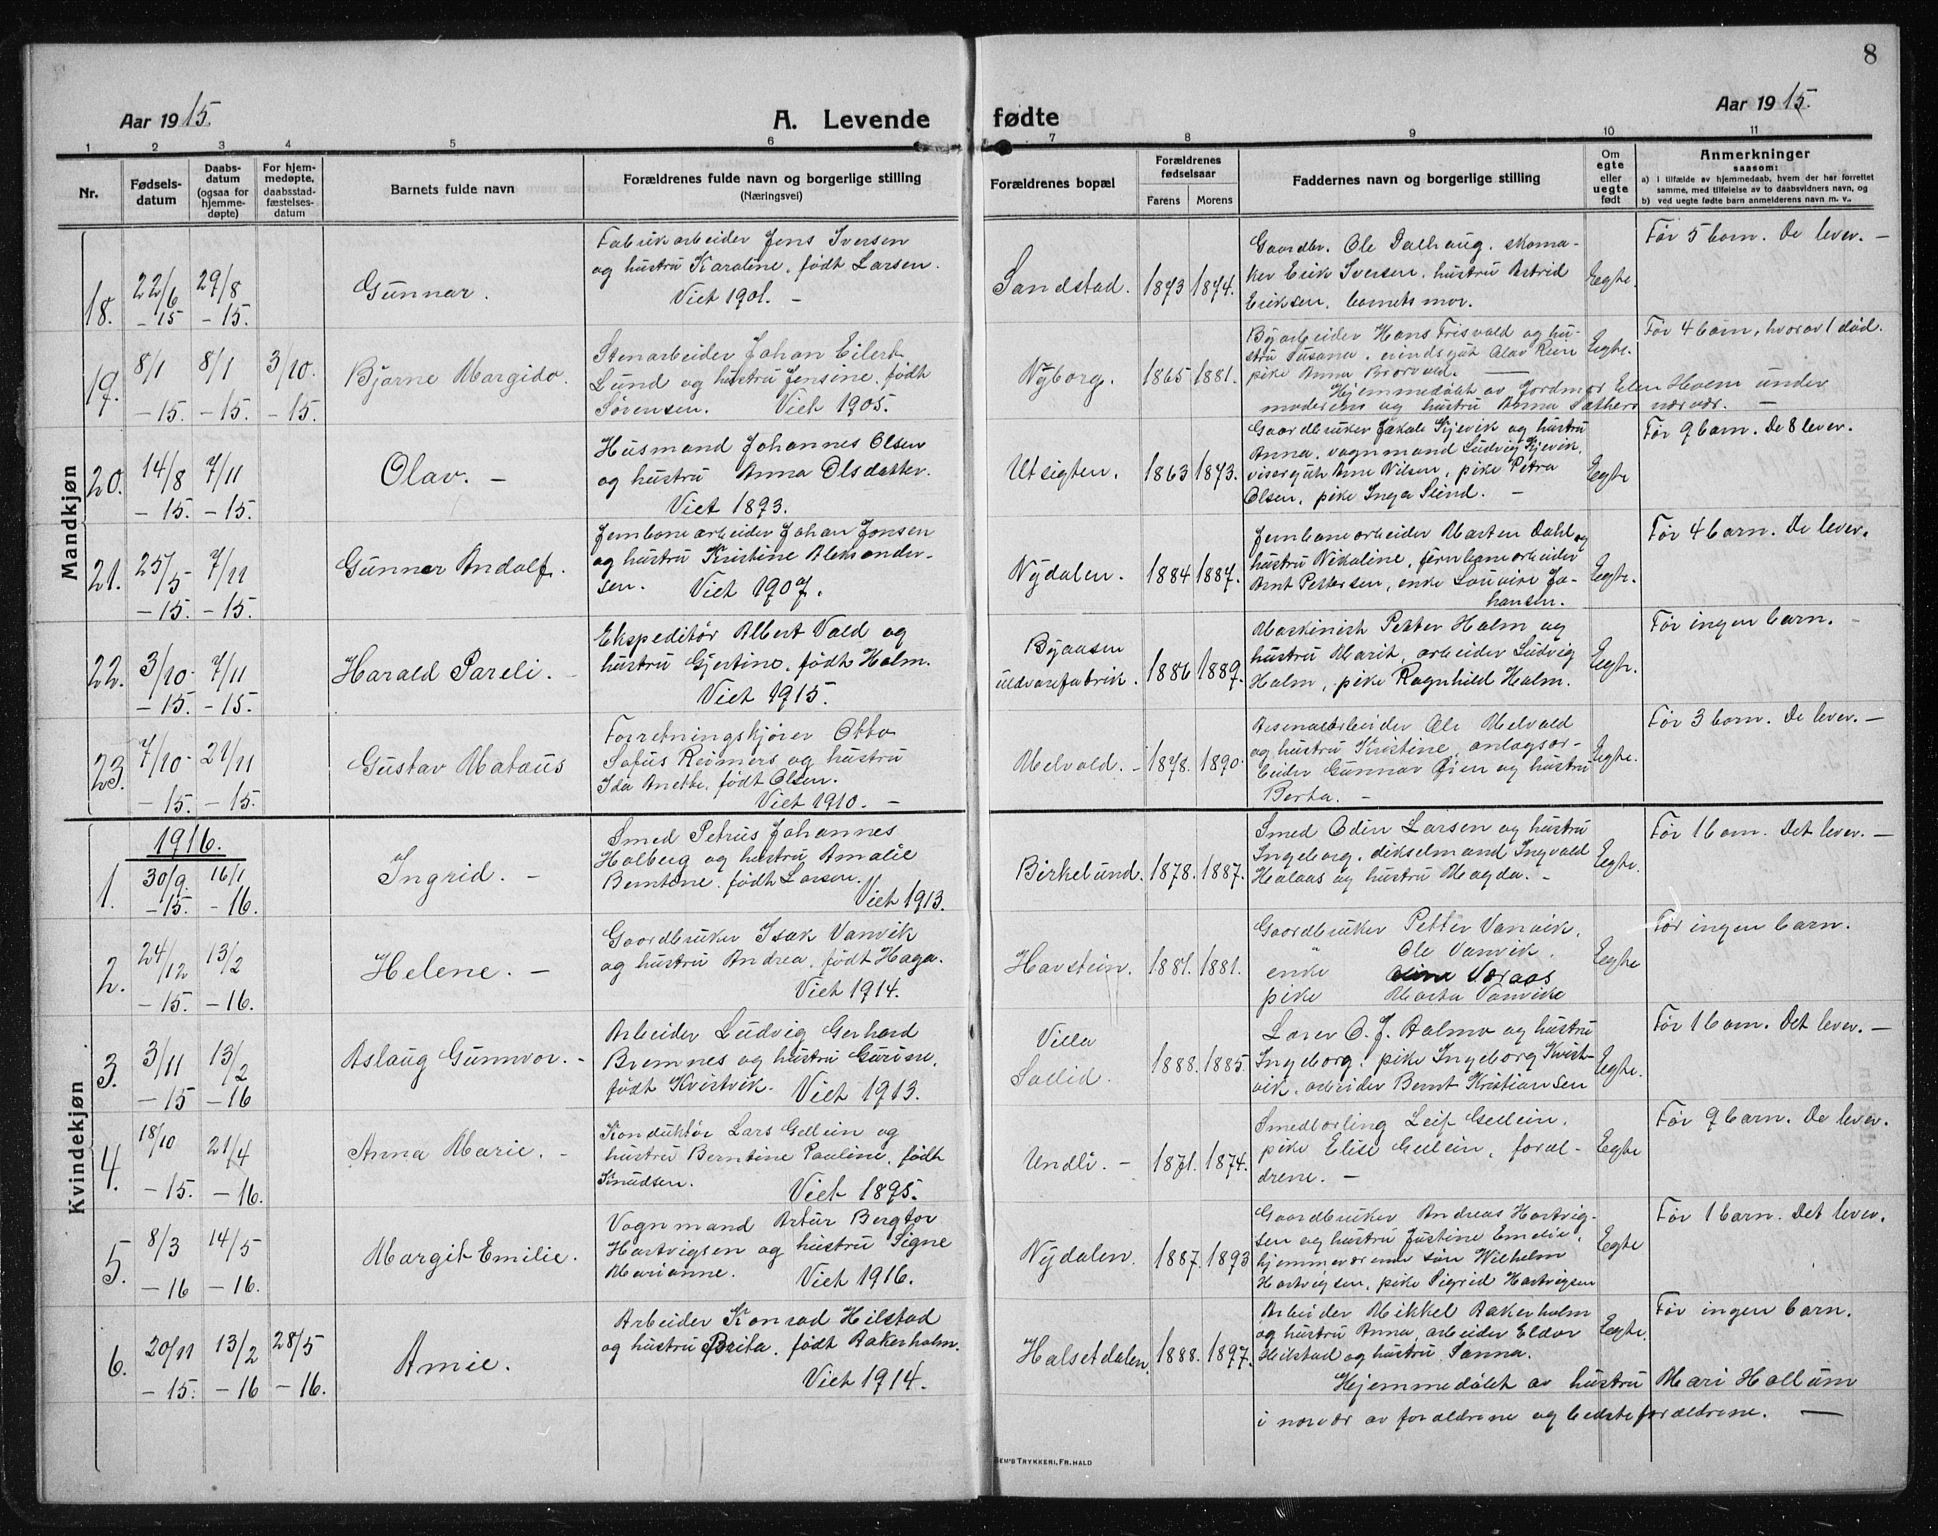 8
Aar 1915.
A. Levende fødte
Aar 1915.
1 2 3 4 5 6 7 8 9 10 11
Nr.
Fødsels-
datum
Daabs-
datum
(ogsaa for
hjemme-
døpte)
For hjem-
medøpte,
daabsstad-
fæstelses-
datum
Barnets fulde navn
Forældrenes fulde navn og borgerlige stilling
(Næringsvei)
Forældrenes bopæl
Forældrenes
fødselsaar
Farens Morens
Faddernes navn og borgerlige stilling
Om
egte
eller
uegte
født
Anmerkninger
saasom:
a) i tilfælde av hjemmedaab, hvem der har forrettet
samme, med tilføielse av to daabsvidners navn, og
b) ved uegte fødte barn anmelderens navn m. v.
Mandkjøn
18. 22/6 -15 29/8 -15.
Gunnar.
Fabrikarbeider Jens Iversen
og hustru Karoline, født Larsen.
Viet 1901. -
Sandstad. 1873 1874.
Gaardbr. Ole Dalhaug, skoma-
ker Erik Iversen, hustru Astrid
Eriksen, barnets mor.
Egte.
Før 5 barn. De lever. -
19. 8/1 -15. 8/1 -15. 3/10. -15.
Bjarne Margido.
Stenarbeider Johan Eilert
Lund og hustru Jensine, født
Sørensen. Viet 1905.
Nyborg. 1865 1881.
Byarbeider Hans Trisvald og hu-
stru Susana, Olav Rein
pike Anna Brorvald.
Egte.
Før 4 barn, hvorav 1 død.
Hjemmedøbt av Jordmor Elen Hoem under
moderens og hustru Anna Sæthers nærvær. -
20. 14/8 -15. 7/11 -15.
Olav. -
Husmand Johannes Olsen
og hustru Anna Olsdatter.
Viet 1893.
Utsigten. 1863 1873.
Gaardbruker Jakob Kjevik og hustru
Anna, vognmand Ludvig Kjevik,
visergut Arne Nilsen, pike Petra
Olsen, pike Inga Lund. -
Egte
Før 9 barn. De 8 lever.
21. 25/5 -15. 7/11 -15.
Gunnar Andolf.
Jernbanearbeider Johan Jonsen
og hustru Kristine Aleksander-
sen. Viet 1907.
Nydalen. 1884 1887.
Jernbanearbeider Marten Dahl og
hustru Nikoline, jernbanearbeider
Arnt Pettersen, enke Lovise Jo-
hansen.
Egte.
Før 4 barn. De lever.
22. 3/10 -15. 7/11 -15.
Harald Pareli. -
Ekspeditør Albert Vold og
hustru Gjertine, født Holm.
Viet 1915.
Byaasen
uldvarefabrik. 1886 1889.
Maskinist Petter Holm og
hustru Marit, arbeider Ludvig
Holm, pike Ragnhild Holm.
Egte.
Før ingen barn. -
23. 7/10 -15. 21/11 -15.
Gustav Mataus
Forretningskjører Otto
Sofus Reimers og hustru
Ida Anette, født Olsen.
Viet 1910. -
Melvald. - 1878. 1890.
Arsenalarbeider Ole Melvald
og hustru Kristine, anlagsar-
beider Gunnar Øien og hustru
Berta. -
Egte.
Før 3 barn. De lever. -
Kvindekjøn
1916.
1. 30/9 -15. 16/1 -16.
Ingrid. -
Smed Petrus Johannes
Holberg og hustru Amalie
Berntine, født Larsen.
Viet 1913.
Birkelund. 1878. 1887.
Smed Odin Larsen og hustru
Ingeborg, dikselmand Ingvald
Halaas og hustru Magda. -
Egte.
Før 1 barn. Det lever. -
2. 24/12 -15. 13/2 -16.
Helene. -
Gaardbruker Isak Vanvik
og hustru Andrea, født Haga.
Viet 1914.
Havstein. 1881. 1881.
Gaardbruker Petter Vanvik.
" Ole Vanvik.
enke Væraas
pike Marta Vanvik
Egte
Før ingen barn.
3. 3/11 -15 13/2 -16
Aslaug Gunnvor. -
Arbeider Ludvig Gerhard
Bremnes og hustru Gurine,
født Kvistvik. Viet 1913.
Villa
Sollid. 1888. 1885.
Lærer O. J. Aalmo og hustru
Ingeborg, pike Ingeborg Kvist-
vik, arbeider Bernt Kristiansen
Egte.
Før 1 barn. Det lever. -
4. 18/10 -15. 21/4 -16.
Anna Marie. -
Konduktør Lars Gellein og
hustru Berntine Pauline, født
Knudsen. Viet 1895.
Undli. - 1871. 1874.
Smedlærling Leif Gellein,
pike Elise Gellein, foræl-
drene. -
Egte
Før 9 barn. De lever.
5. 8/3 -16 14/5 -16.
Margit Emilie.
Vognmand Artur Bergtor
Hartvigsen og hustru Signe
Marianne. Viet 1916.
Nydalen. 1887. 1893
Gaardbruker Andreas Hartvig-
sen og hustru Justine Emelie,
hjemmeværende søn Wilhelm
Hartvigsen, pike Sigrid Hartvigsen
Egte
Før 1 barn. Det lever.
6. 20/11 -15. 13/2 -16 28/5 -16.
Amie.
Arbeider Konrad Hilstad
og hustru Brita, født Aakerholm.
Viet 1914.
Halsetdalen. 1888. 1897.
Arbeider Mikkel Aakerholm
og hustru Anna, arbeider Eldor
Hilstad og hustru Sanna.
Egte.
Før ingen barn.
Hjemmedøbt av hustru Mari Hallum
i nærvær av forældrene og bedsteforældrene. -
SEM'S TRYKKERI, FR. HALD